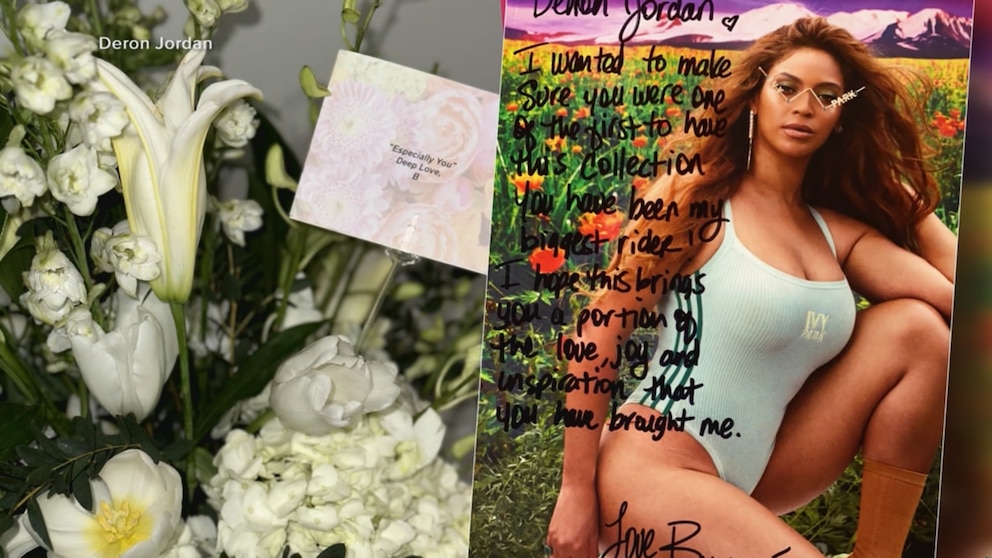 Deron Jordan
"Especially You"
Deep Love,
B
Deron Jordan
I wanted to make
Sure you were one
of the first to have
this Collection
You have been my
biggest rider!
I hope this brings
you a portion of
the love, joy and
inspiration that
you have brought me.
Love B
PARK
IVY
PARK